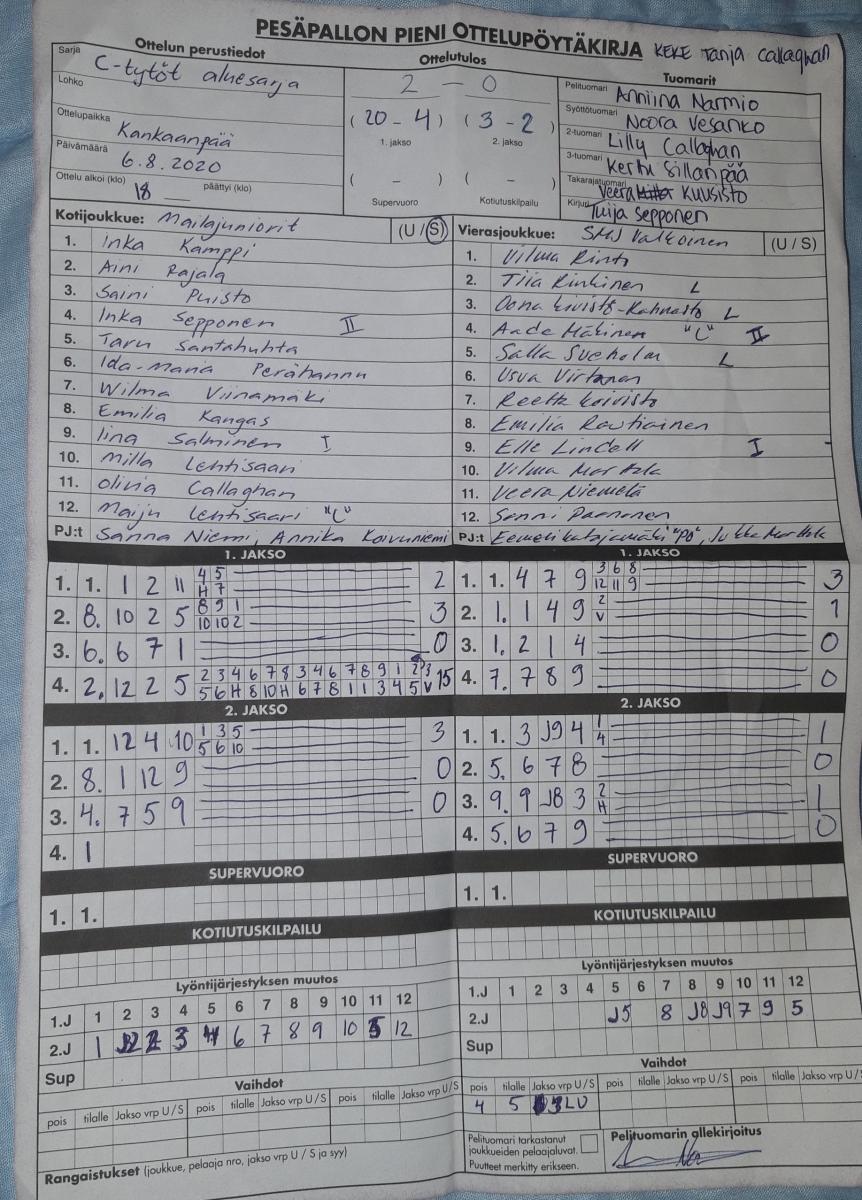 PESÄPALLON PIENI OTTELUPÖYTÄKIRJA KEKE Tanja Callaghan
Sarja Ottelun perustiedot Ottelutulos Tuomarit
C-tytöt aluesarja
2 - 0
Lohko
Pelituomari Anniina Narmio
Syöttötuomari Noora Vesanko
Ottelupaikka Kankaanpää
(20 - 4) (3 - 2)
1. jakso 2. jakso
2-tuomari Lilly Callaghan
3-tuomari Kerttu Sillanpää
Päivämäärä 6.8.2020
Takarajatuomari Veera Kuusisto
Ottelu alkoi (klo) 18 päättyi (klo)
( - ) ( - )
Supervuoro Kotiutuskilpailu
Kirjuri Tuija Sepponen
Kotijoukkue: Mailajuniorit (U / S)
1. Inka Kamppi
2. Aini Rajala
3. Saini Puisto
4. Inka Sepponen II
5. Taru Santahuhta
6. Ida-Maria Perähannu
7. Wilma Viinamäki
8. Emilia Kangas
9. Iina Salminen I
10. Milla Lehtisaari
11. Olivia Callaghan
12. Maiju Lehtisaari "C"
PJ:t Sanna Niemi, Annika Koivuniemi
Vierasjoukkue: SMJ Valkoinen (U / S)
1. Vilma Rinto
2. Tiia Rinkinen L
3. Oona Kivistö-Kahnasto L
4. Aada Mäkinen "C" II
5. Salla Sucholm L
6. Usva Virtanen
7. Reetta Koivisto
8. Emilia Rautiainen
9. Elle Lindell I
10. Vilma Marttala
11. Veera Niemelä
12. Sanni Paananen
PJ:t Eemeli Katajamäki "PO", Jukka Marttala
1. JAKSO
1. 1. 1 2 11 4 5 2
H 7
2. 8. 10 2 5 8 9 1 3
10 10 2
3. 6. 6 7 1 0
4. 2. 12 2 5 2 3 4 6 7 8 3 4 6 7 8 9 1 2 3 15
5 6 H 8 10 H 6 7 8 1 1 3 4 5 V
1. JAKSO
1. 1. 4 7 9 3 6 8 3
12 11 9
2. 1. 1 4 9 2 1
V
3. 1. 2 1 4 0
4. 7. 7 8 9 0
2. JAKSO
1. 1. 12 4 10 1 3 5 3
5 6 10
2. 8. 1 12 9 0
3. 4. 7 5 9 0
4. 1
2. JAKSO
1. 1. 3 J9 4 1 1
4
2. 5. 6 7 8 0
3. 9. 9 J8 3 2 1
H
4. 5. 6 7 9 0
SUPERVUORO
1. 1.
SUPERVUORO
1. 1.
KOTIUTUSKILPAILU
KOTIUTUSKILPAILU
Lyöntijärjestyksen muutos
1.J 1 2 3 4 5 6 7 8 9 10 11 12
2.J 1 2 3 6 7 8 9 10 5 12
Sup
Lyöntijärjestyksen muutos
1.J 1 2 3 4 5 6 7 8 9 10 11 12
2.J J5 8 J8 J9 7 9 5
Sup
Vaihdot
pois tilalle Jakso vrp U / S pois tilalle Jakso vrp U / S pois tilalle Jakso vrp U / S
Vaihdot
pois tilalle Jakso vrp U / S pois tilalle Jakso vrp U / S pois tilalle Jakso vrp U / S
4 5
Rangaistukset (joukkue, pelaaja nro, jakso vrp U / S ja syy)
Pelituomari tarkastanut
joukkueiden pelaajaluvat.
Puutteet merkitty erikseen.
Pelituomarin allekirjoitus